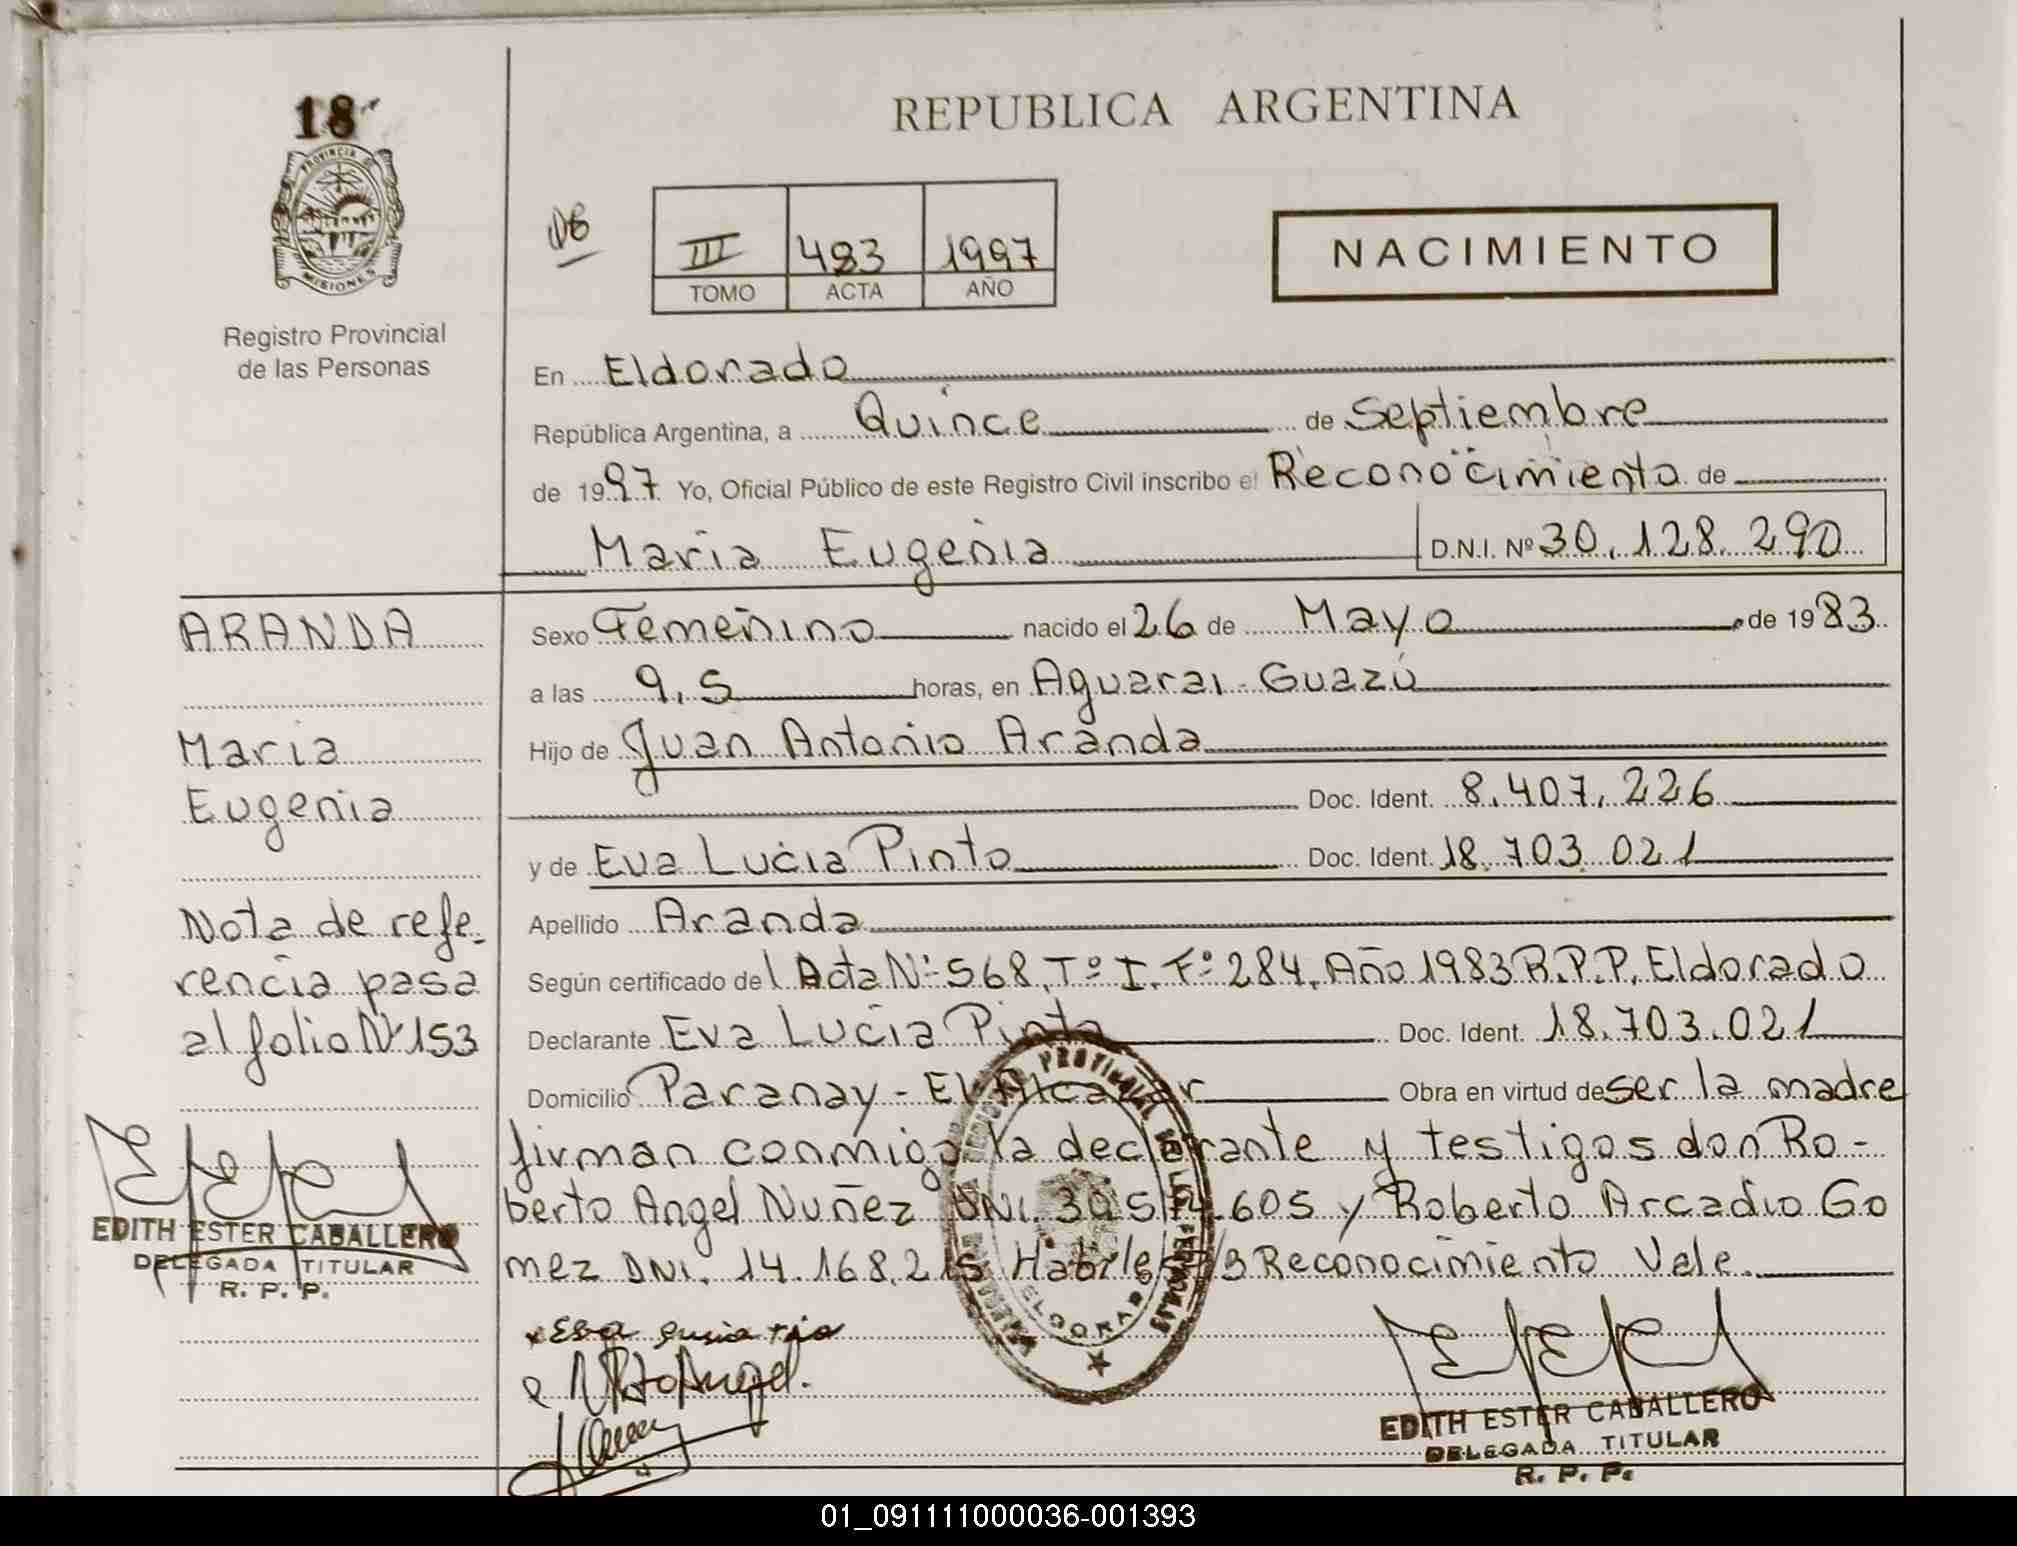 18
PROVINCIA DE
MISIONES
Registro Provincial
de las Personas
REPUBLICA ARGENTINA
III 483 1997
TOMO ACTA AÑO
NACIMIENTO
En Eldorado
República Argentina, a Quince de Septiembre
de 1997 Yo, Oficial Público de este Registro Civil inscribo el Reconocimiento de
Maria Eugenia D.N.I. Nº 30.128.290
ARANDA
Maria
Eugenia
Nota de refe-
rencia pasa
al folio Nº 153
EDITH ESTER CABALLERO
DELEGADA TITULAR
R. P. P.
Sexo Femenino nacido el 26 de Mayo de 1983
a las 9,5 horas, en Aguarai-Guazú
Hijo de Juan Antonio Aranda
Doc. Ident. 8.407.226
y de Eva Lucia Pinto Doc. Ident. 18.703.021
Apellido Aranda
Según certificado del Acta Nº 568, Tº I. Fº 284, Año 1983 R.P.P. Eldorado
Declarante Eva Lucia Pinto Doc. Ident. 18.703.021
Domicilio Paranay - El Alcazar Obra en virtud de ser la madre
firman conmigo la declarante y testigos don Ro-
berto Angel Nuñez DNI. y Roberto Arcadio Go
mez DNI. 14.168.215 Reconocimiento Vale.
ELDORADO
EDITH ESTER CABALLERO
DELEGADA TITULAR
R. P. P.
01_091111000036-001393